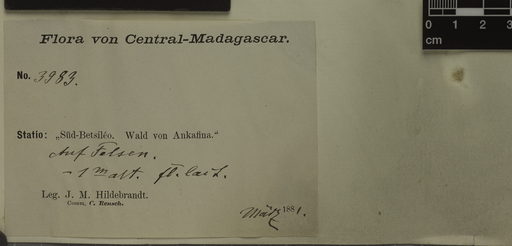 0 1 2 3
cm
Flora von Central-Madagascar.
No. 3983.
Statio: „Süd-Betsiléo. Wald von Ankafina."
Auf Felsen.
- 1 m alt. fl.
Leg. J. M. Hildebrandt.
Comm. C. Rensch.
März 1881.